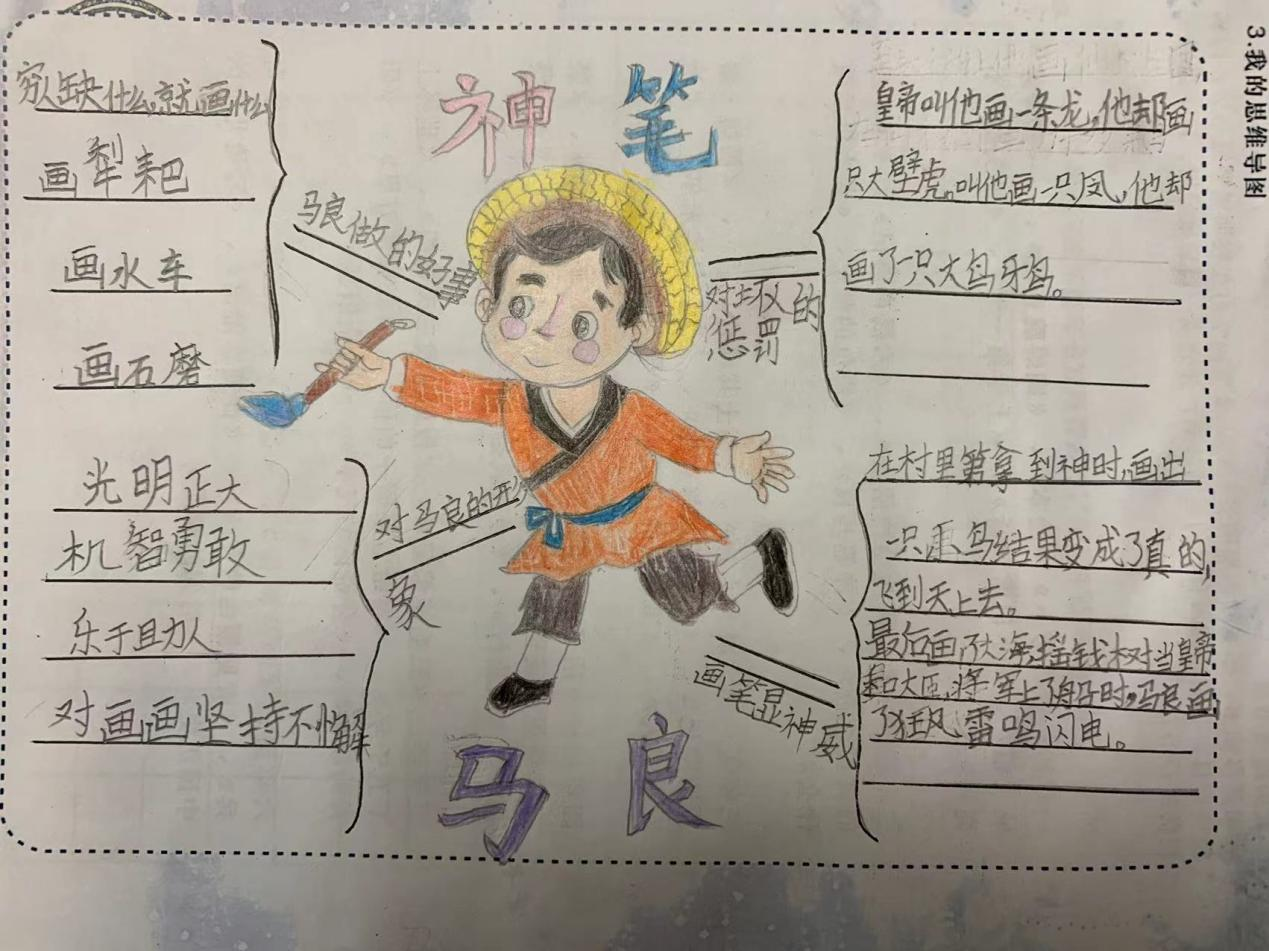 3.我的思维导图
神笔
马良
马良做的好事
穷人缺什么,就画什么
画犁耙
画水车
画石磨
对马良的形
象
光明正大
机智勇敢
乐于助人
对画画坚持不懈
的
惩罚
皇帝叫他画一条龙,他却画
只大壁虎。叫他画一只凤,他却
画了一只大乌牙鸟。
画笔显神威
在村里第拿到神时,画出
一只 鸟结果变成了真的,
飞到天上去。
最后画了大海,摇钱树对当皇帝
和大臣,将军上了船时,马良画
了狂风,雷鸣闪电。